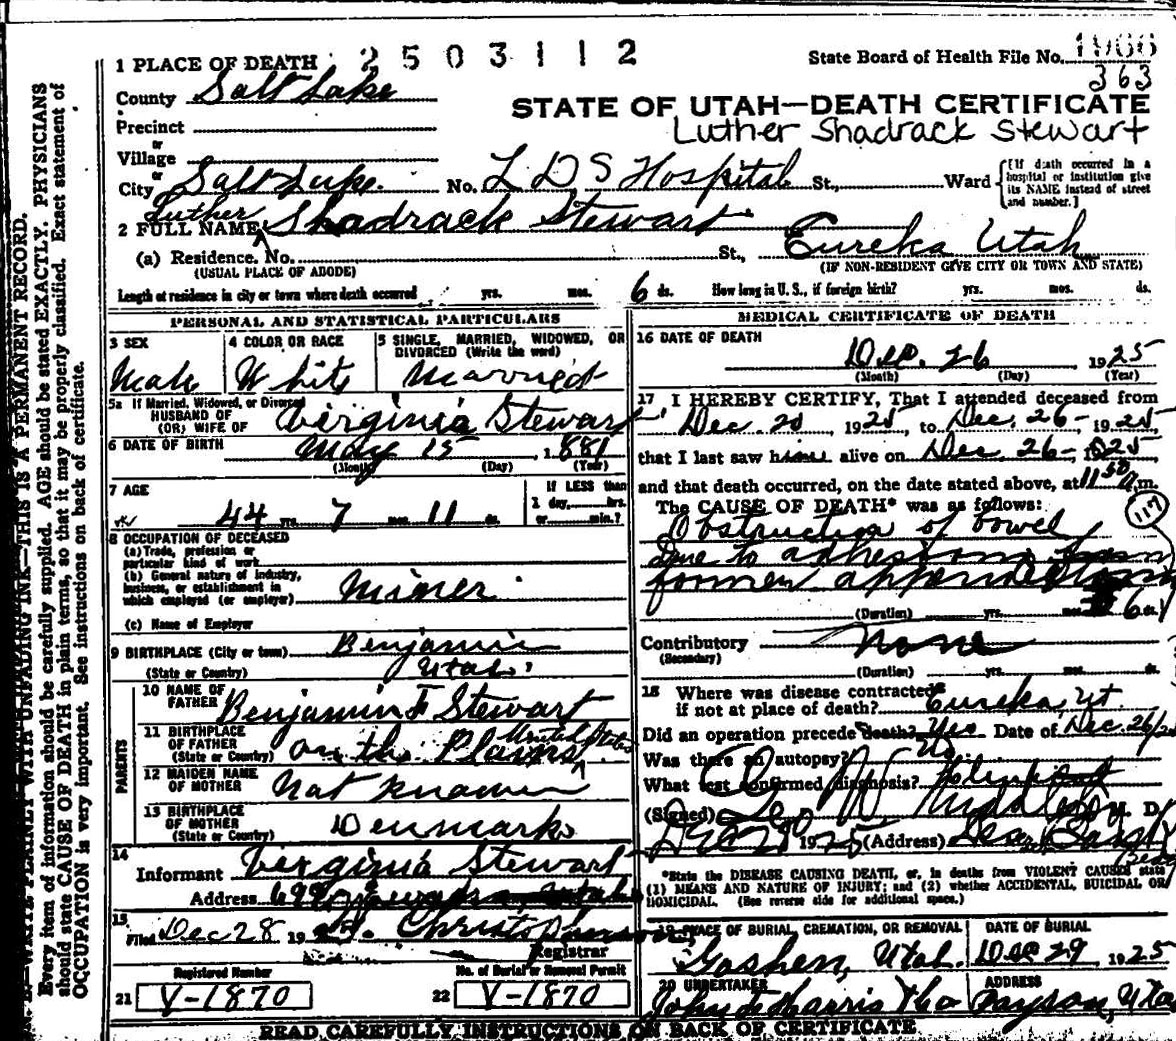 1 PLACE OF DEATH
2 5 0 3 1 1 2
State Board of Health File No. 1966
363
County Salt Lake
STATE OF UTAH—DEATH CERTIFICATE
Precinct
Luther Shadrack Stewart
or
Village
or
City Salt Lake. No. L D S Hospital St., Ward
[If death occurred in a hospital or institution give its NAME instead of street and number.]
Luther
2 FULL NAME Shadrack Stewart
(a) Residence. No. St., Eureka Utah
(USUAL PLACE OF ABODE) (IF NON-RESIDENT GIVE CITY OR TOWN AND STATE)
Length of residence in city or town where death occurred yrs. mos. 6 ds. How long in U. S., if foreign birth? yrs. mos. ds.
PERSONAL AND STATISTICAL PARTICULARS
3 SEX
Male
4 COLOR OR RACE
White
5 SINGLE, MARRIED, WIDOWED, OR DIVORCED (Write the word)
Married
5a If Married, Widowed, or Divorced
HUSBAND OF
(OR) WIFE OF Virginia Stewart
6 DATE OF BIRTH May 15, 1881
(Month) (Day) (Year)
7 AGE
44 yrs. 7 mos. 11 ds.
If LESS than
1 day, hrs.
or min.?
8 OCCUPATION OF DECEASED
(a) Trade, profession or
particular kind of work
(b) General nature of industry,
business, or establishment in
which employed (or employer) Miner
(c) Name of Employer
9 BIRTHPLACE (City or town) Benjamin
(State or Country) Utah
PARENTS
10 NAME OF
FATHER Benjamin F Stewart
11 BIRTHPLACE
OF FATHER
(State or Country) On the Plains United States
12 MAIDEN NAME
OF MOTHER Not Known
13 BIRTHPLACE
OF MOTHER
(State or Country) Denmark
14
Informant Virginia Stewart
Address
15
Filed Dec 28 19
Registrar
Registered Number
21 V-1870
No. of Burial or Removal Permit
22 V-1870
MEDICAL CERTIFICATE OF DEATH
16 DATE OF DEATH
Dec. 26 1925
(Month) (Day) (Year)
17 I HEREBY CERTIFY, That I attended deceased from
Dec. 20, 1925, to Dec. 26-, 1925,
that I last saw him alive on Dec. 26-, 1925
and that death occurred, on the date stated above, at 11 50 a.m.
The CAUSE OF DEATH* was as follows:
117
Obstruction of bowel
due to adhesions from
former
(Duration) yrs. mos. 6 ds.
Contributory None
(Secondary)
(Duration) yrs. mos. ds.
18 Where was disease contracted
if not at place of death? Eureka, Ut
Did an operation precede death? Yes Date of Dec. 26/25
Was there an autopsy? No
What test confirmed diagnosis?
(Signed) M. D.
1925 (Address)
*State the DISEASE CAUSING DEATH, or, in deaths from VIOLENT CAUSES state
(1) MEANS AND NATURE OF INJURY; and (2) whether ACCIDENTAL, SUICIDAL OR
HOMICIDAL. (See reverse side for additional space.)
19 PLACE OF BURIAL, CREMATION, OR REMOVAL
Goshen, Utah.
DATE OF BURIAL
Dec 29 1925
20 UNDERTAKER
ADDRESS
Payson, Utah
READ CAREFULLY INSTRUCTIONS ON BACK OF CERTIFICATE
WRITE PLAINLY WITH UNFADING INK—THIS IS A PERMANENT RECORD.
Every item of information should be carefully supplied. AGE should be stated EXACTLY. PHYSICIANS
should state CAUSE OF DEATH in plain terms, so that it may be properly classified. Exact statement of
OCCUPATION is very important. See instructions on back of certificate.